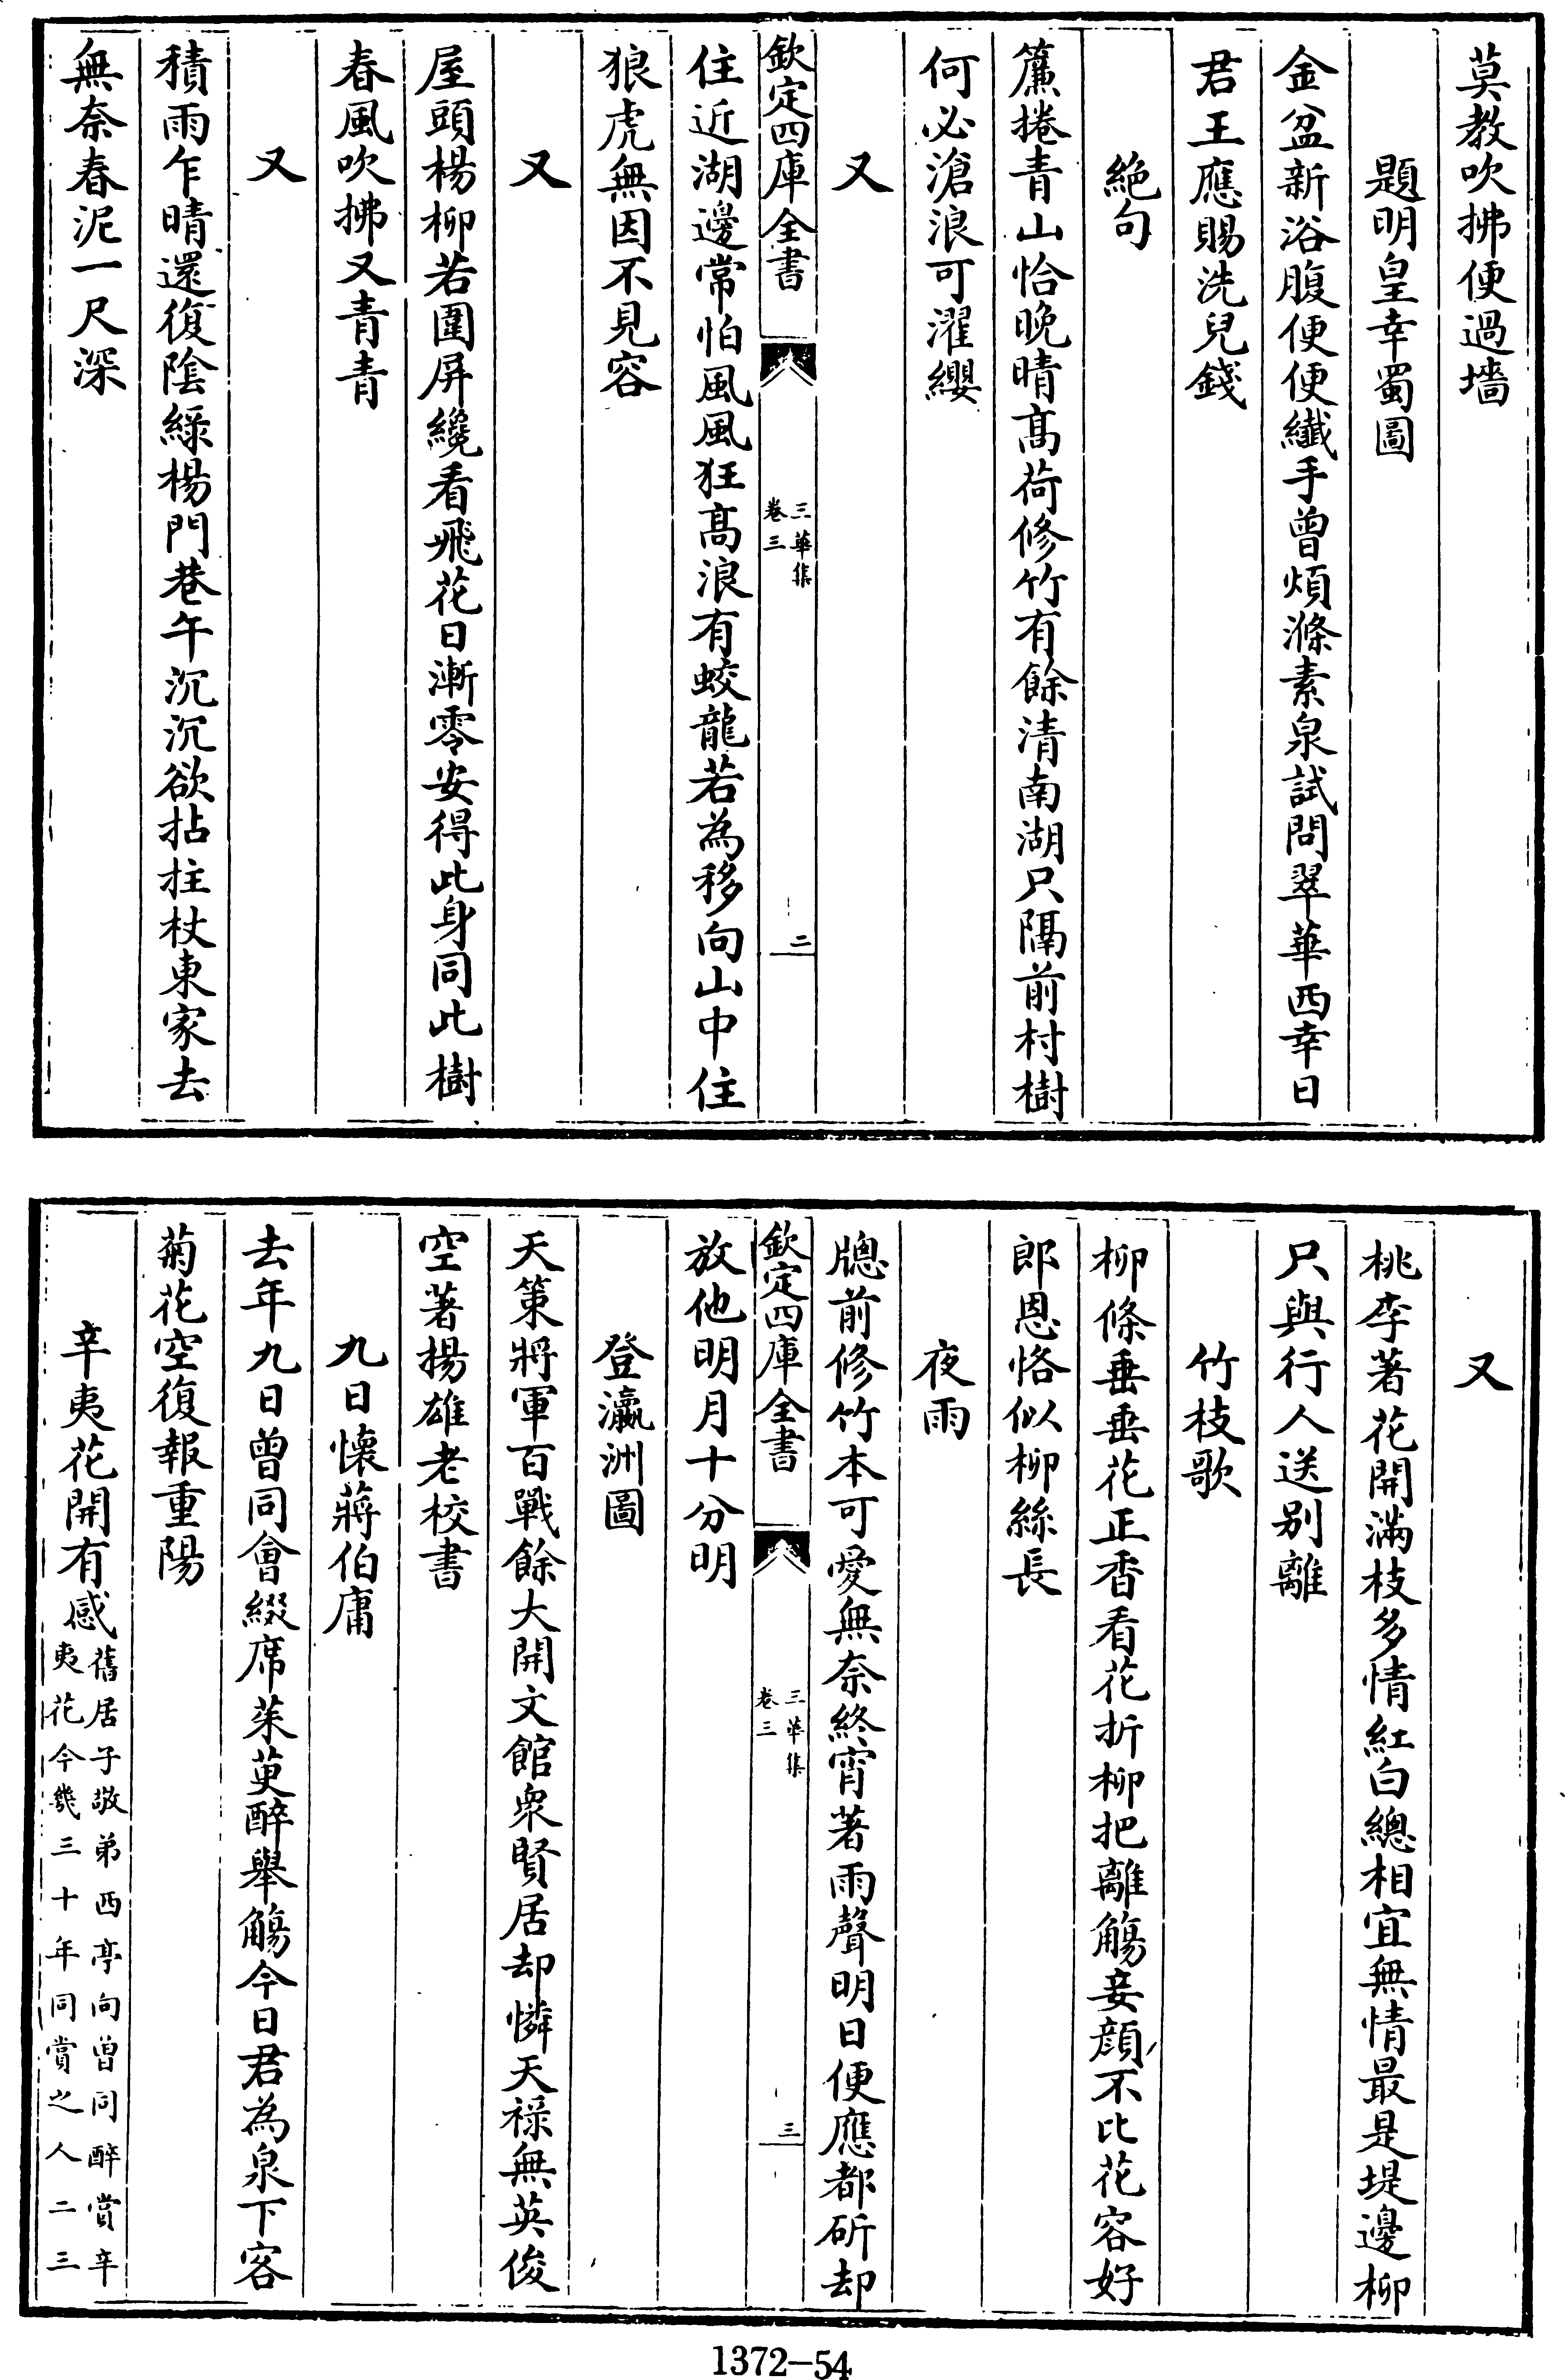 莫教吹拂便過墻
題明皇幸蜀圖
金盆新浴腹便便纖手曾煩滌素泉試問翠華西幸日
君王應賜洗兒錢
絶句
簾捲青山恰晩晴髙荷修竹有餘清南湖只隔前村樹
何必滄浪可濯纓
又
欽定四庫全書
三華集
卷三
二
住近湖邊常怕風風狂髙浪有蛟龍若為移向山中住
狼虎無因不見容
又
屋頭楊柳若圍屏纔看飛花日漸零安得此身同此樹
春風吹拂又青青
又
積雨乍晴還復陰緑楊門巷午沉沉欲拈拄杖東家去
無奈春泥一尺深
又
桃李著花開滿枝多情紅白總相宜無情最是堤邊柳
只與行人送别離
竹枝歌
柳條垂垂花正香看花折柳把離觴妾顔不比花容好
郎恩恪似柳絲長
夜雨
牕前修竹本可愛無奈終宵著雨聲明日便應都斫却
欽定四庫全書
三華集
卷三
三
放他明月十分明
登瀛洲圖
天策將軍百戰餘大開文館衆賢居却憐天禄無英俊
空著揚雄老校書
九日懷蔣伯庸
去年九日曾同會綴席茱萸醉舉觴今日君為泉下客
菊花空復報重陽
辛夷花開有感
舊居子敬弟西亭向曽同醉賞辛
夷花今幾三十年同賞之人二三
1372-54